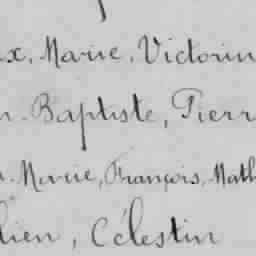 ux, Marie, Victorin
n. Baptiste, Pierr
n. Marie, François, Math
lien, Célestin